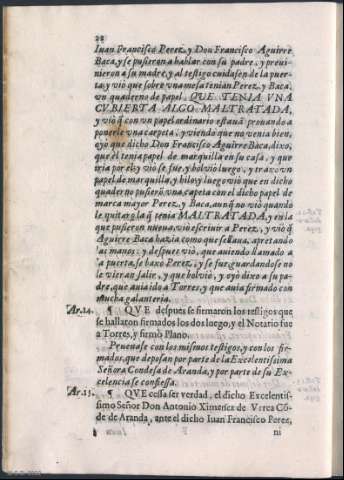 28
Iuan Francisco Perez, y Don Francisco Aguirre
Baca, y se pusieron a hablar con su padre, y preui-
nieron a su madre, y al testigo cuidasen de la puer-
ta, y viò que sobre vna mesa tenian Perez, y Baca,
vn quaderno de papel, QUE TENIA VNA
CVBIERTA ALGO MALTRATADA,
y viò q̃ con vn papel ordinario estauã prouando a
ponerle vna carpeta, y viendo que no venia bien,
oyo que dicho Don Francisco Aguirre Baca, dixo,
que èl tenia papel de marquilla en su casa, y que
iria por el; y viò se fue, y boluiò luego, y traxo vn
papel de marquilla, y luego viò que en dicho
quaderno pusierõ vna carpeta con el dicho papel de
marca mayor Perez, y Baca, aunq̃ no viò quando
le quitarõ la q̃ tenia MALTRATADA, y en la
que pusieron nueua, viò escriuir a Perez, y viò q̃
Aguirre Baca hazia como que sellaua, apretando
las manos; y despues viò, que auiendo llamado a
la puerta, se baxò Perez, y se fue, guardandose no
le vieran salir, y que bolviò, y oyò dixo a su pa-
dre, que auia ido a Torres, y que auia firmado con
mucha galanteria.
Ar.24. ¶ QVE despues se firmaron los testigos que
se hallaron firmados los dos luego, y el Notario fue
a Torres, y firmò Plano.
Prueuase con los mismos testigos, y con los fir-
mados, que deposan por parte de la Excelentissima
Señora Condesa de Aranda, y por parte de su Ex-
celencia se confiesa.
Ar.25. ¶ QVE cessa ser verdad, el dicho Excelentis-
simo Señor Don Antonio Ximenez de Vrrea Cõ-
de de Aranda, ante el dicho Iuan Francisco Perez,
ni